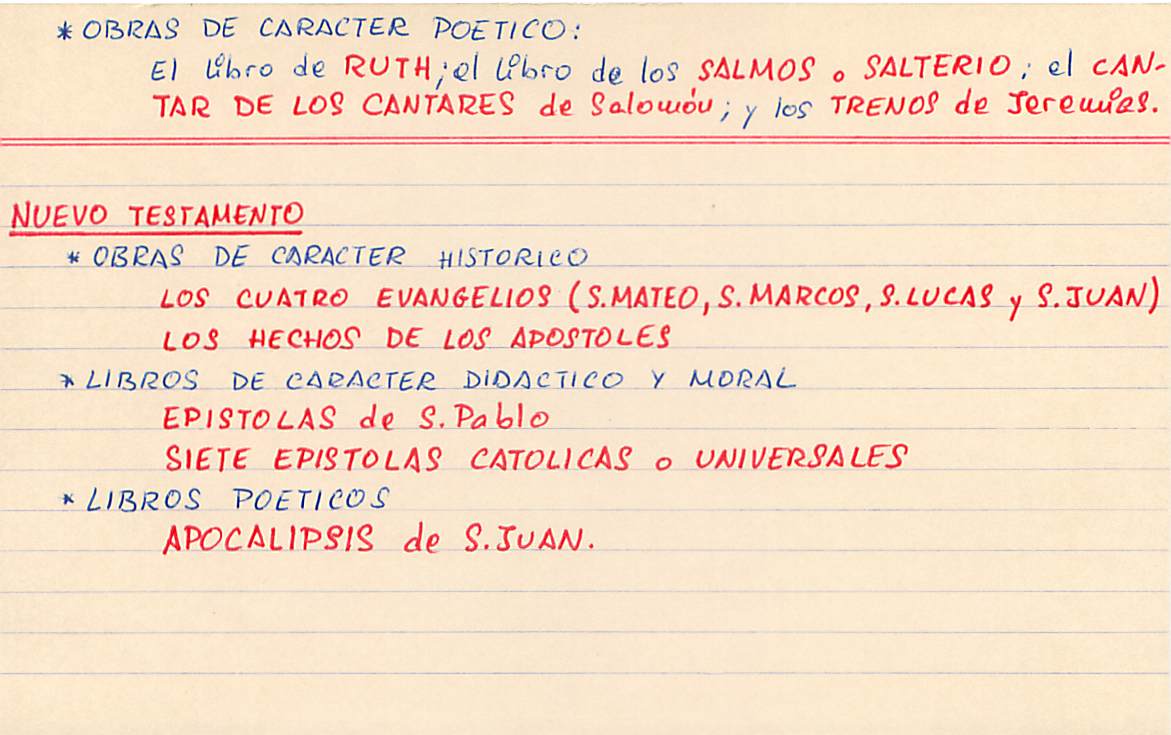 * OBRAS DE CARACTER POETICO:
El libro de RUTH; el libro de los SALMOS o SALTERIO; el CAN-
TAR DE LOS CANTARES de Salomón; y los TRENOS de Jeremías.
NUEVO TESTAMENTO
* OBRAS DE CARACTER HISTORICO
LOS CUATRO EVANGELIOS (S.MATEO, S.MARCOS, S.LUCAS y S.JUAN)
LOS HECHOS DE LOS APOSTOLES
* LIBROS DE CARACTER DIDACTICO Y MORAL
EPISTOLAS de S.Pablo
SIETE EPISTOLAS CATOLICAS o UNIVERSALES
* LIBROS POETICOS
APOCALIPSIS de S.JUAN.